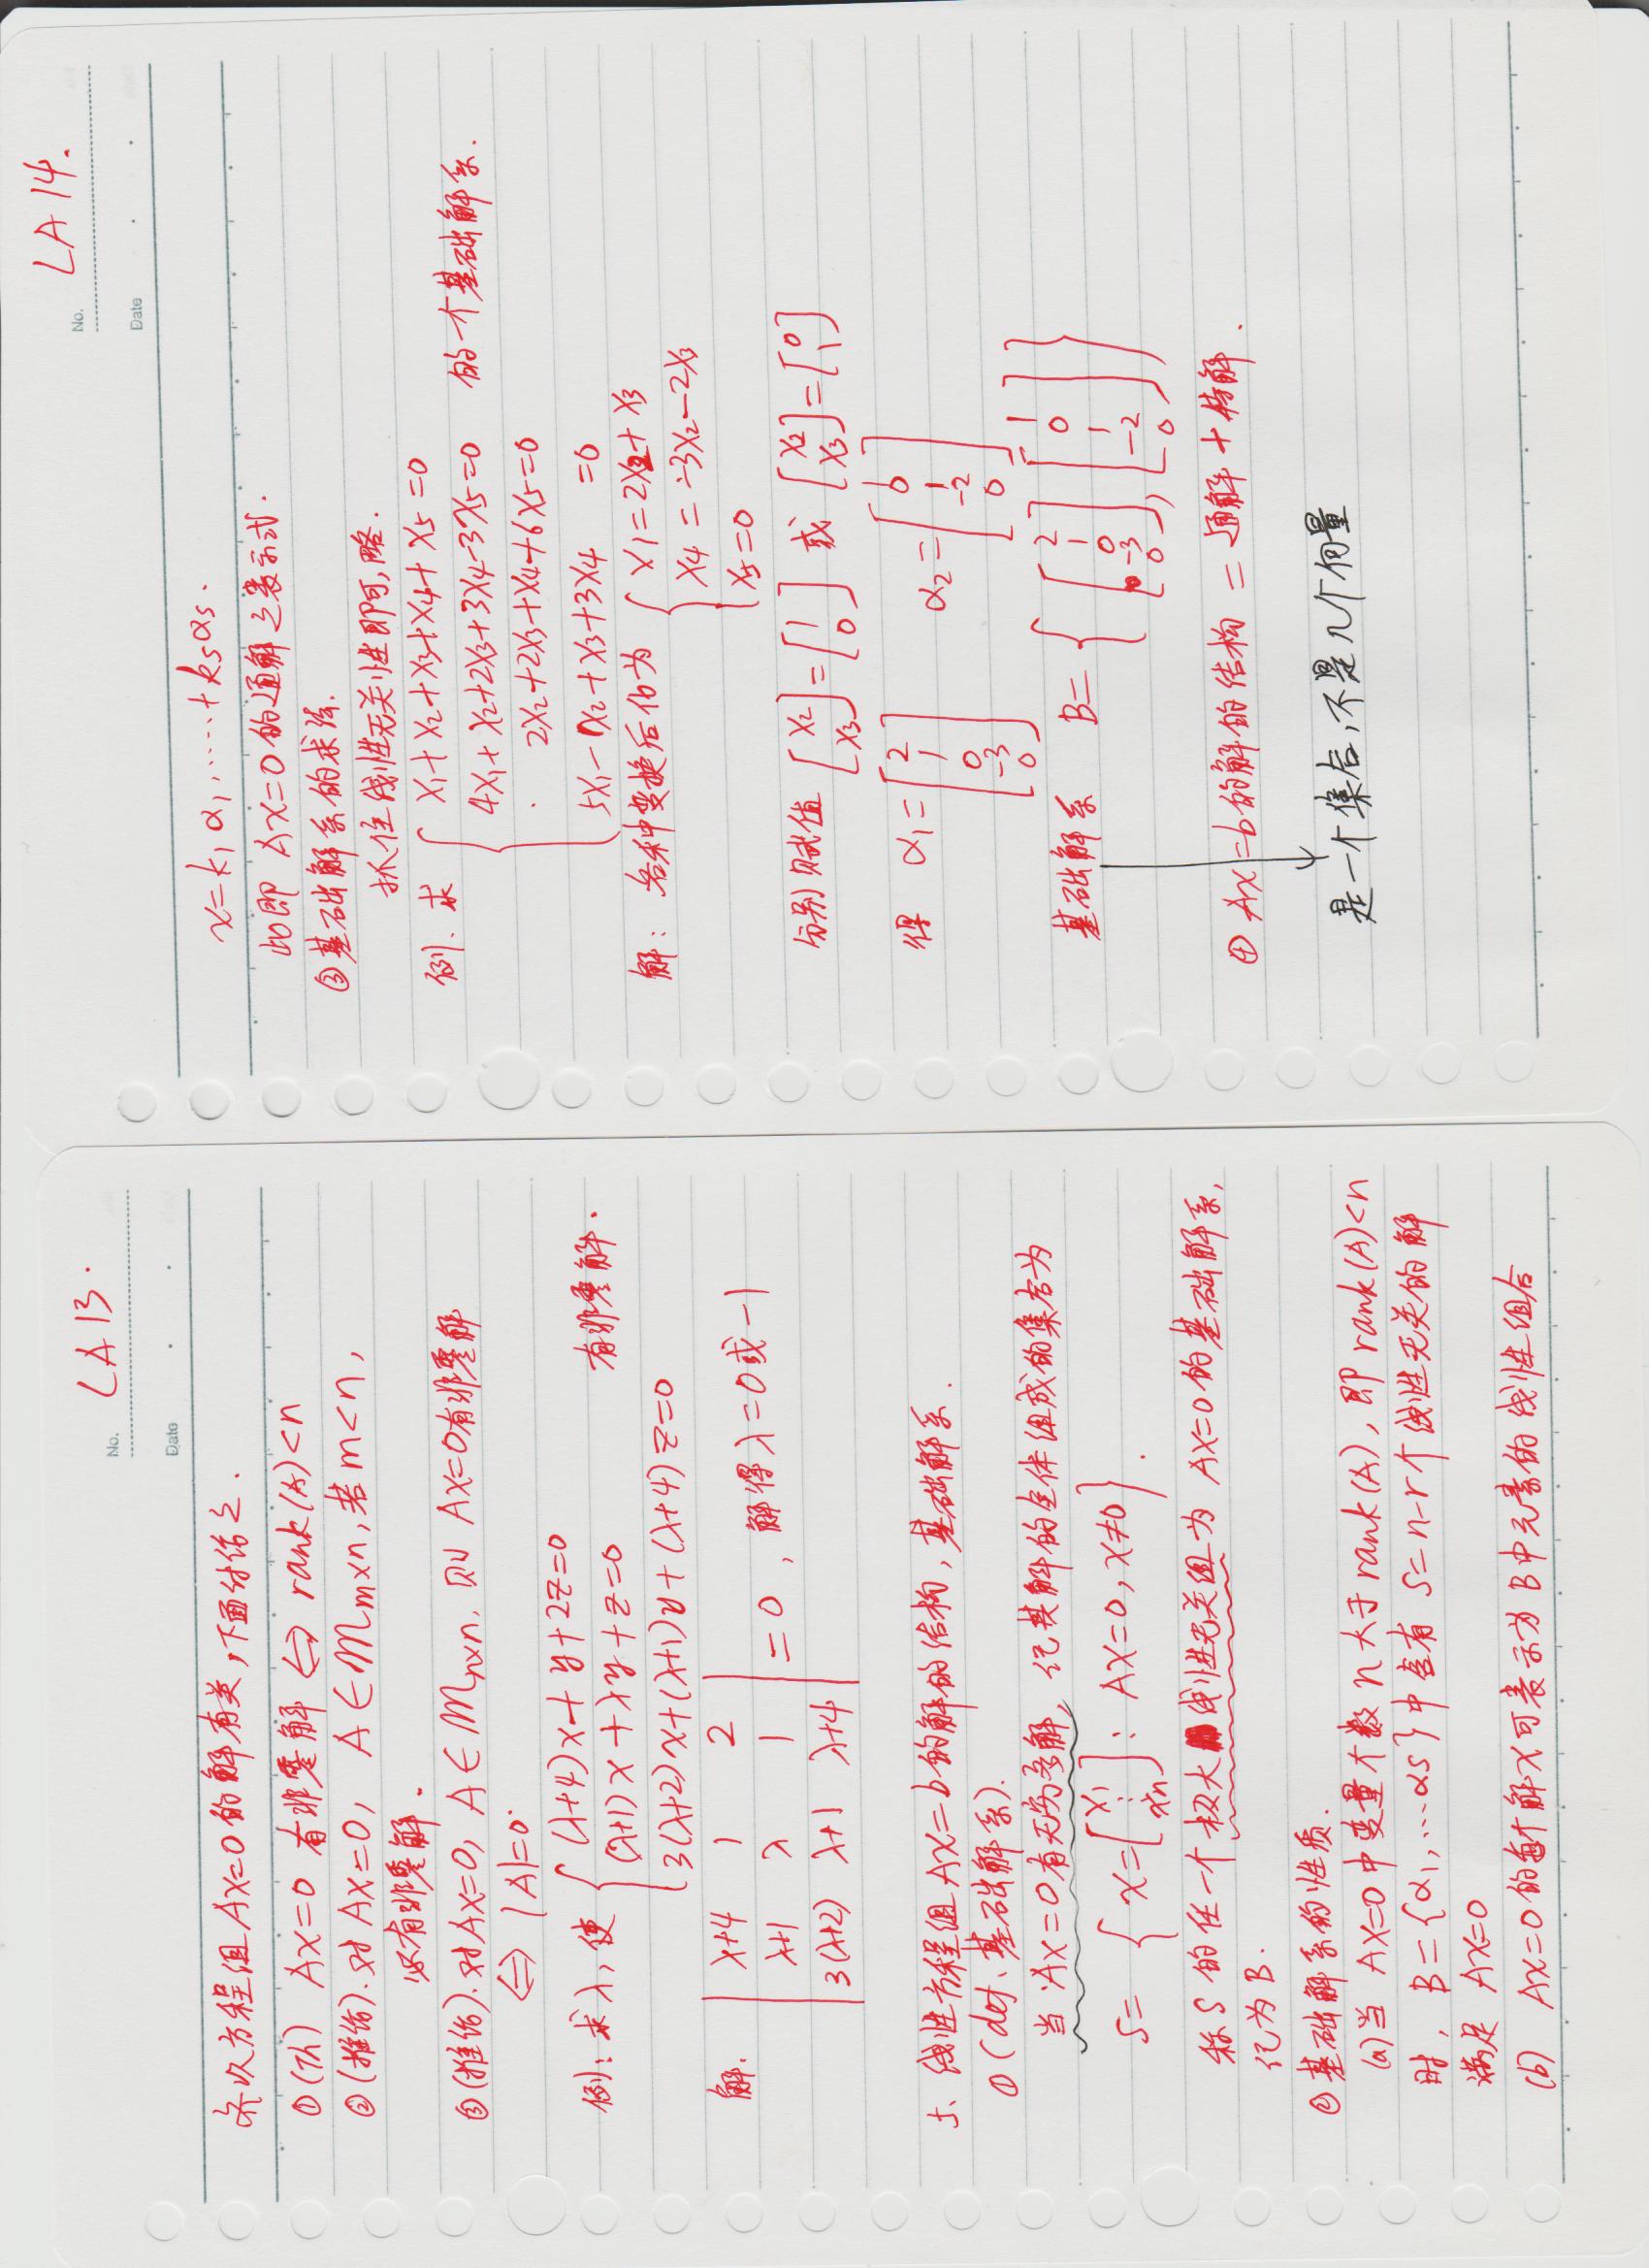 No. LA13.
Date
齐次方程组 Ax=0 的解有关,下面讨论之.
①(Th) Ax=0 有非零解 ⇔ rank(A)<n
②(推论). 对 Ax=0, A∈Mm×n, 若 m<n,
必有非零解.
③(推论). 对 Ax=0, A∈Mn×n, 则 Ax=0有非零解
⇔ |A|=0.
例: 求λ, 使 { (λ+4)x+y+2z=0
(λ+1)x+λy+z=0 有非零解.
3(λ+2)x+(λ+1)y+(λ+4)z=0
解. | λ+4 1 2 |
| λ+1 λ 1 | =0, 解得λ=0或-1
| 3(λ+2) λ+1 λ+4 |
5、线性方程组 Ax=b的解的结构, 基础解系.
①(def、基础解系).
当 Ax=0有无穷多解, 记其解的全体组成的集合为
S= { x=[x1 ⋮ xn] : Ax=0, x≠0 }.
称 S 的任一个极大线性无关组为 Ax=0的基础解系,
记为B.
②基础解系的性质.
(a)当 Ax=0中变量个数 n 大于 rank(A), 即 rank(A)<n
时, B={α1,…αs}中含有 s=n-r个线性无关的解
满足 Ax=0
(b) Ax=0的每个解x可表示为B中元素的线性组合
No. LA14.
Date
x=k1α1……+ksαs.
此即 Ax=0的通解之表示式.
③基础解系的求法.
抓住线性无关性即可,略.
例. 求 { x1+x2+x3+x4+x5=0
4x1+x2+2x3+3x4-3x5=0 的一个基础解系.
2x2+2x3+x4+6x5=0
5x1-x2+x3+3x4 =0
解: 各种变换后化为 { x1=2x2+x3
x4=-3x2-2x3
x5=0
分别赋值 [x2 x3]=[1 0] 或 [x2 x3]=[0 1]
得 α1=[2 1 0 -3 0] α2=[1 0 1 -2 0]
基础解系 B={ [2 1 0 -3 0], [1 0 1 -2 0] }
④ Ax=b的解的结构 = 通解+特解.
是一个集合,不是几个向量